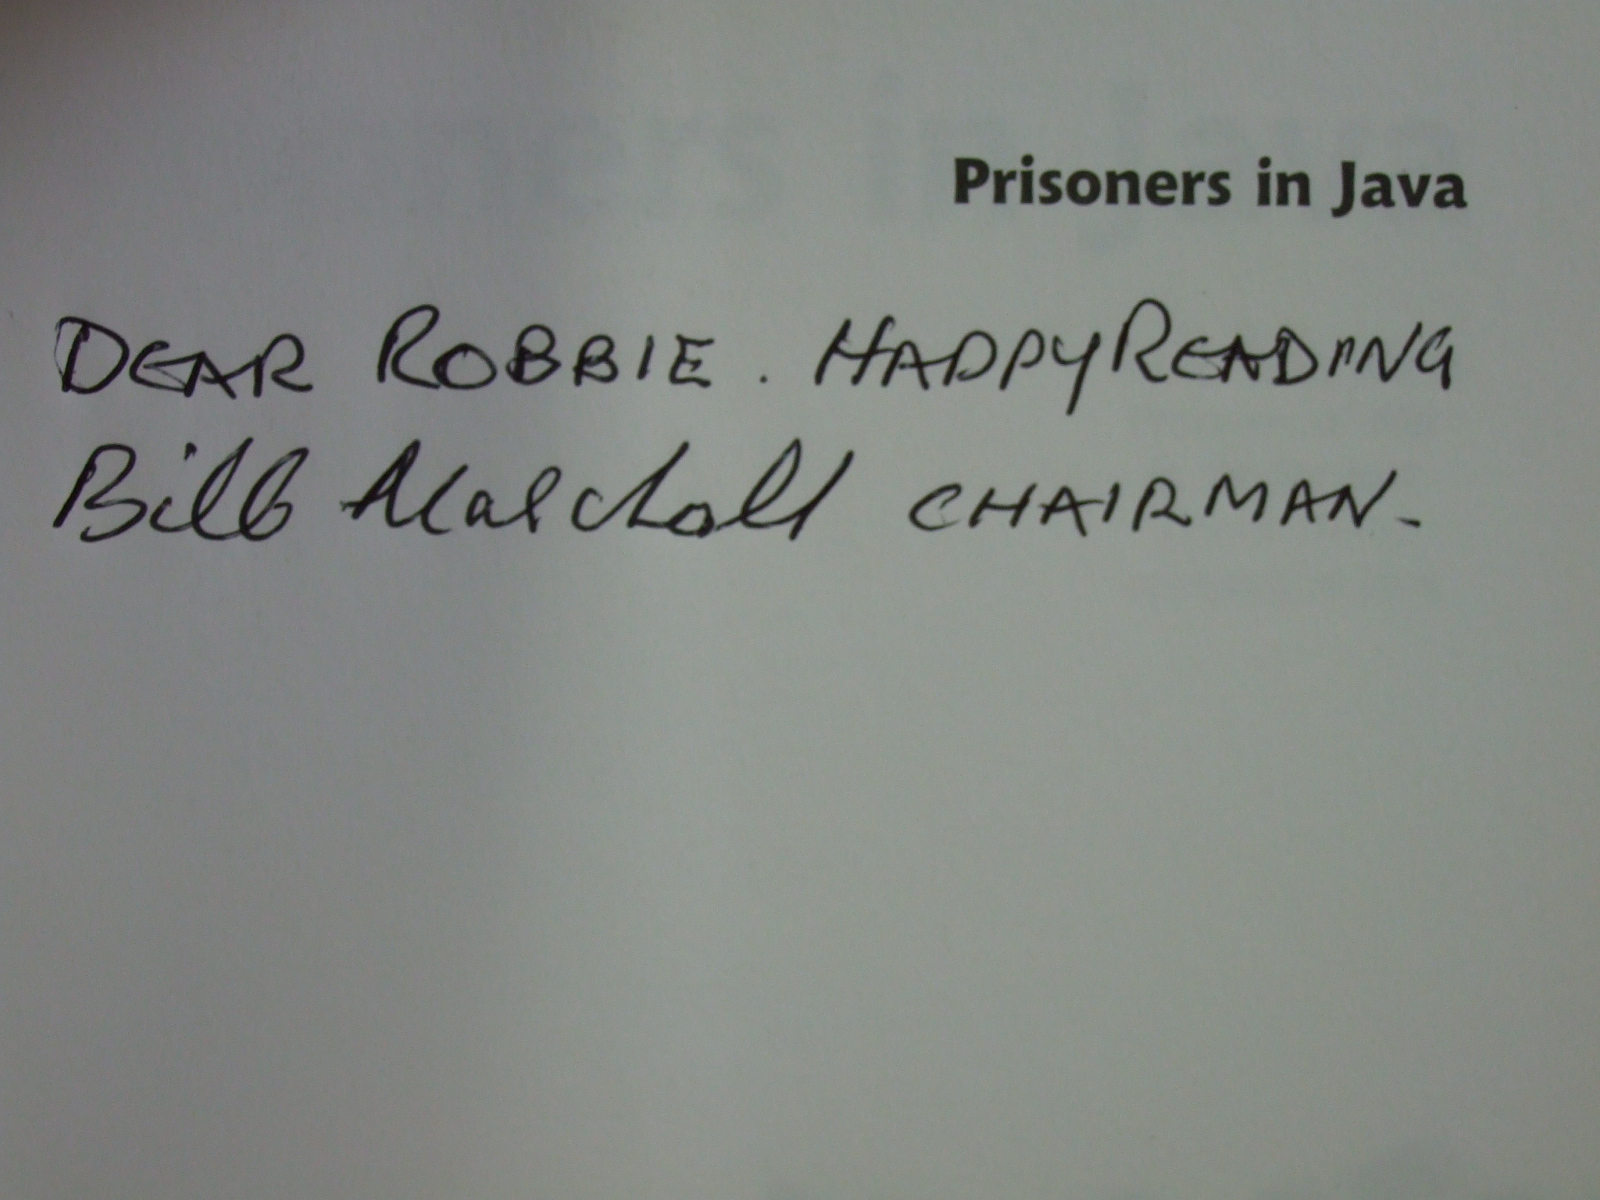 Prisoners in Java
DEAR ROBBIE. HAPPY READING
Bill Marshall CHAIRMAN.